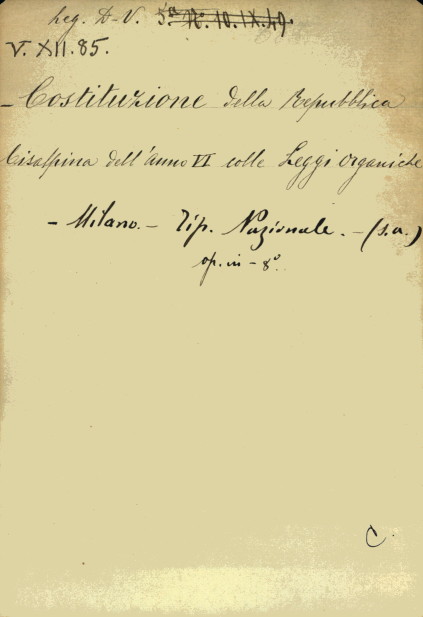 leg. D-V. 5ª N.º 10.IX.49.
V. XII. 85.
- Costituzione della Repubblica
Cisalpina dell'anno VI colle Leggi organiche
- Milano. - Tip. Nazionale. - (s.a.)
op. in - 8º.
C.